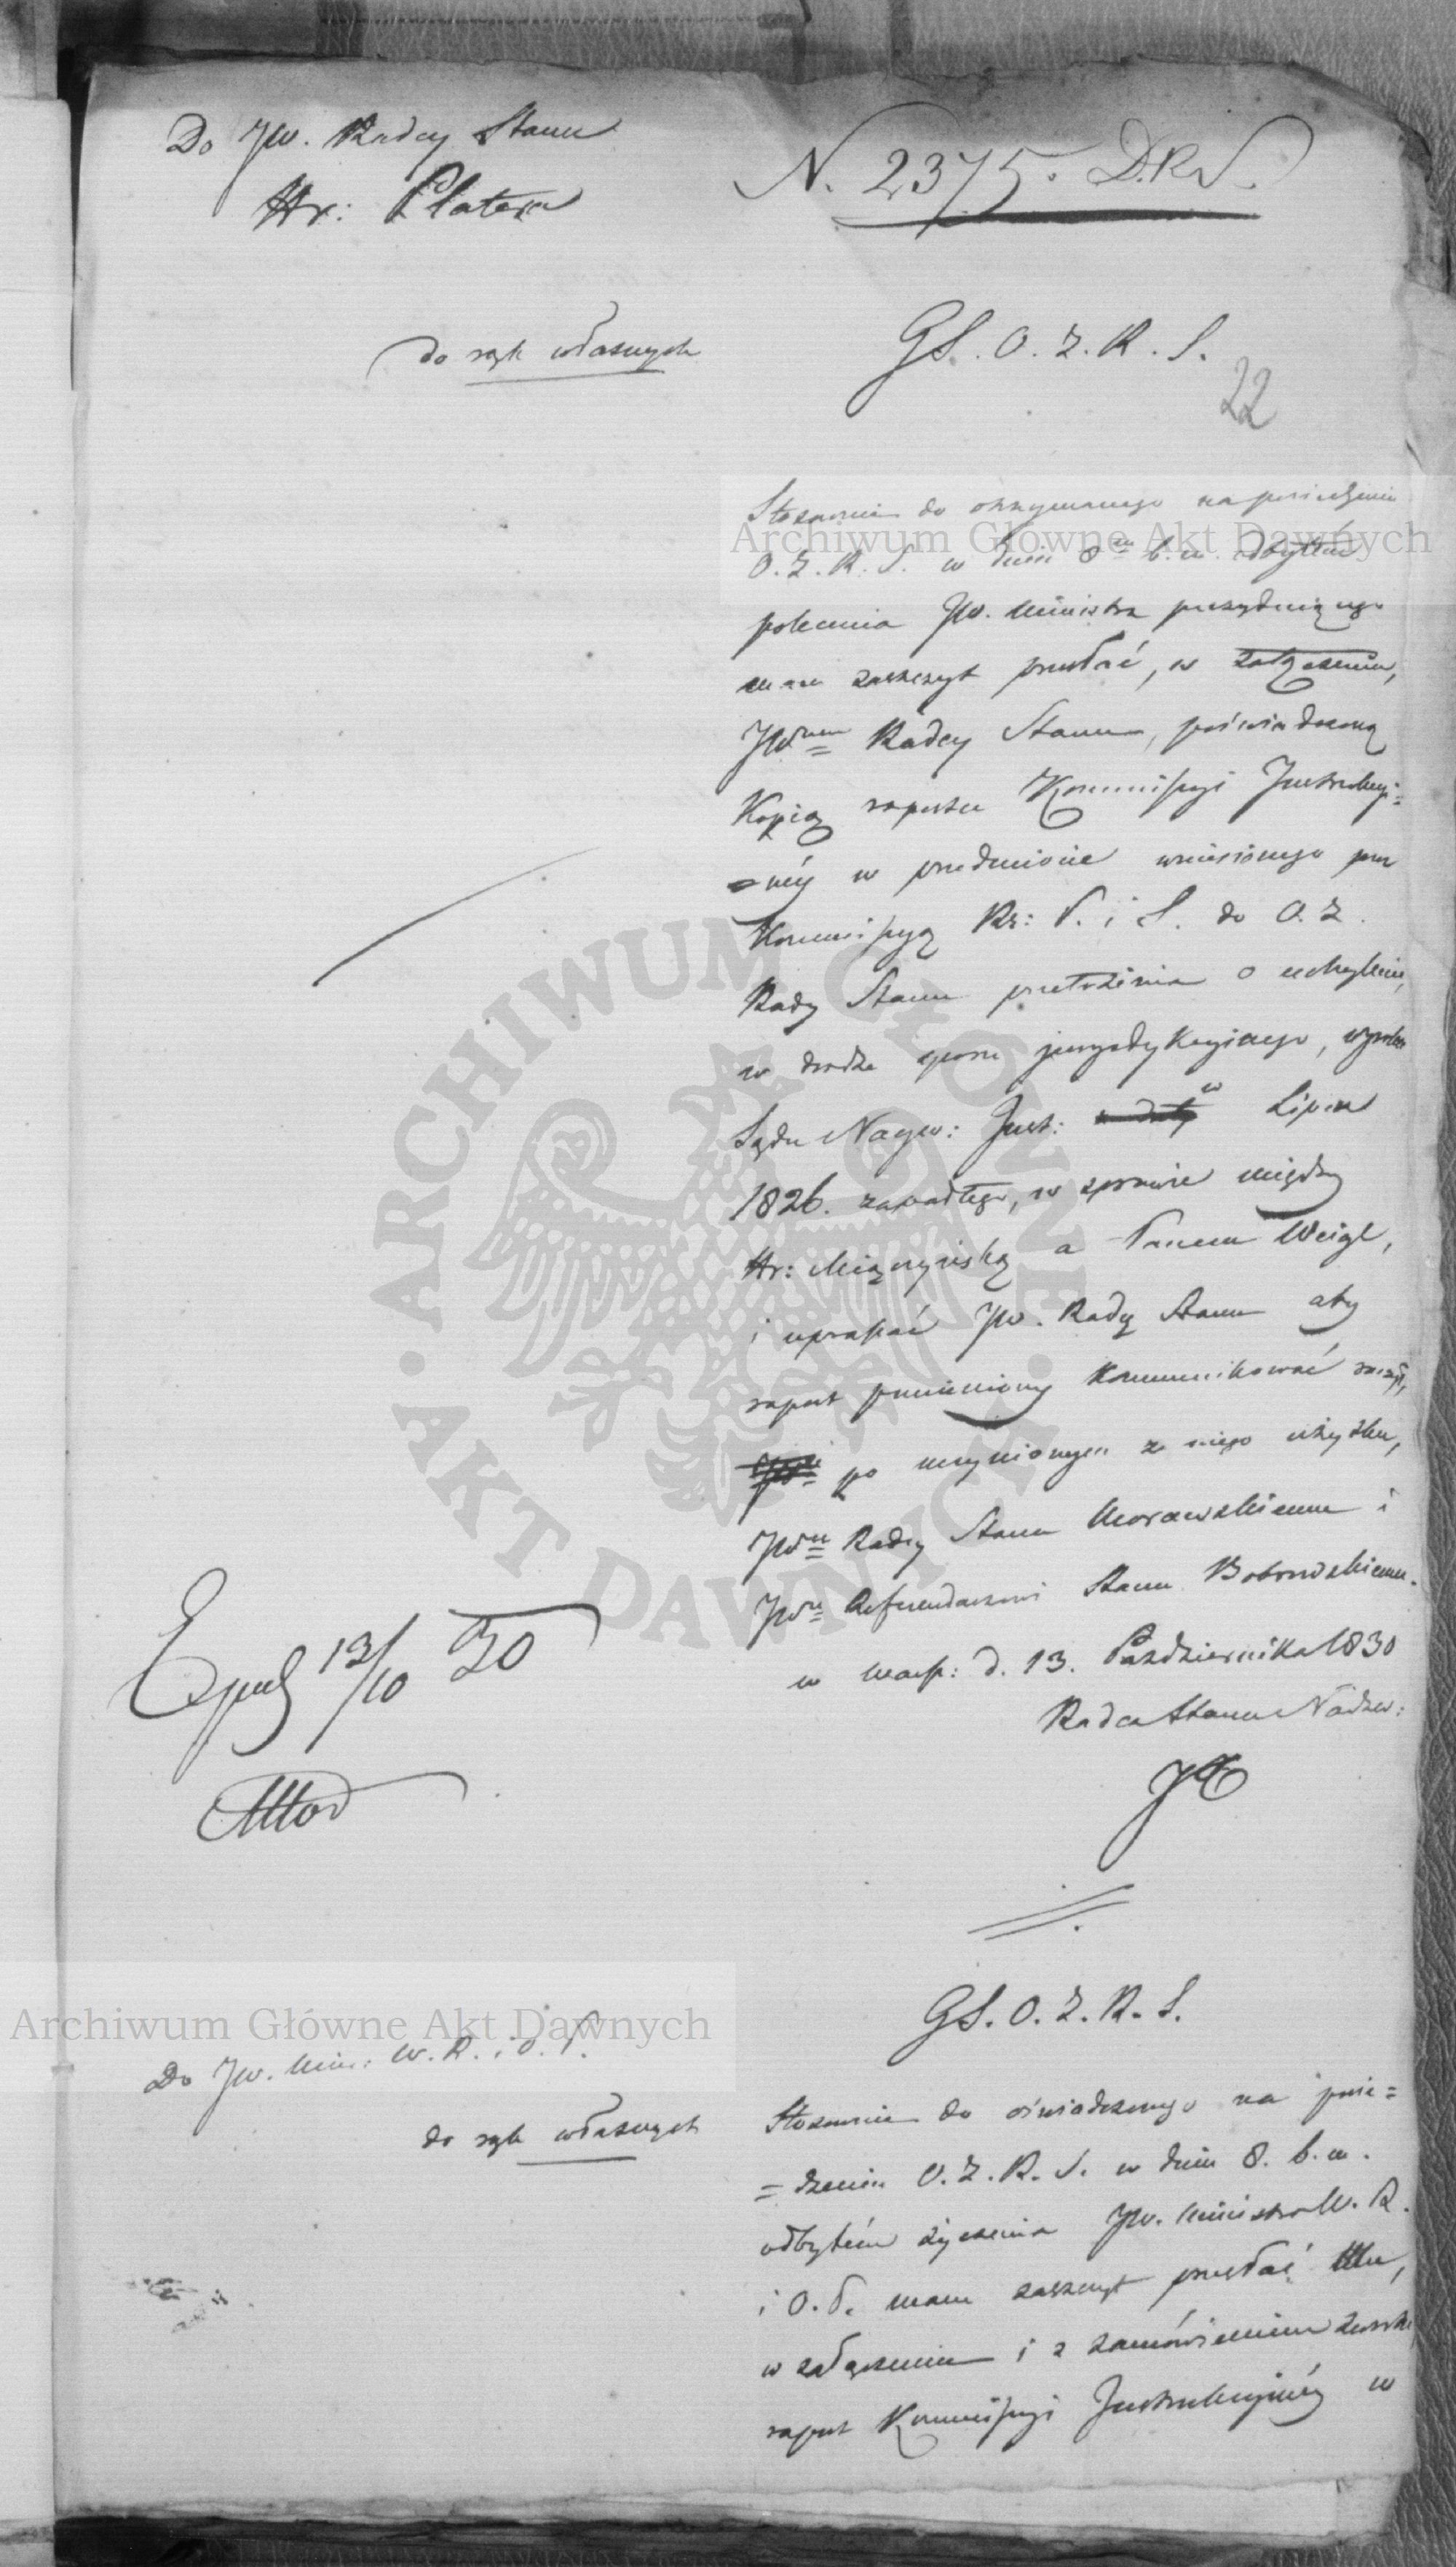 Do JW. Radcy Stanu
Hr: Platera
N. 2375. D.R.S.
do rąk własnych
GS. O. Z. R. S.
22
Stosownie do otrzymanego na posiedzeniu
O. Z. R. S. w dniu 8m b. m. odbytém
polecenia JW. Ministra prezydującego
mam zaszczyt przesłać, w załączeniu,
JWmu Radcy Stanu, poświadczoną
Kopią raportu Kommissyi Instrukcyj=
=néj w przedmiocie wniesionego przez
Kommissyą Rz: P. i S. do O. Z.
Rady Stanu przełożenia o uchylenie,
w drodze sporu jurysdykcyjnego, wyroku
Sądu Najw: Inst: w Lipcu
1826. zapadłego, w sprawie między
Hr: Miączyńską a Panem Weigl,
i upraszać JW. Radcę Stanu aby
raport pomieniony kommunikować raczył,
po uczynionym z niego użytku,
JWmu Radcy Stanu Morawskiemu i
JWmu Referendarzowi Stanu Bobrowskiemu.
w Warsz: d. 13. Października 1830
Radca Stanu Nadzw:
Exped 13/10 30
GS. O. Z. R. S.
Do JW. Min: W. R. i O. P.
do rąk własnych
Stosownie do oświadczonego na posie=
=dzeniu O. Z. R. S. w dniu 8. b. m.
odbytém życzenia JW. Ministra W. R.
i O. P. mam zaszczyt przesłać Mu,
w załączeniu i z zamówieniem zwrotu
raport Kommissyi Instrukcyjnéj w
Archiwum Główne Akt Dawnych
Archiwum Główne Akt Dawnych
ARCHIWUM GŁÓWNE AKT DAWNYCH